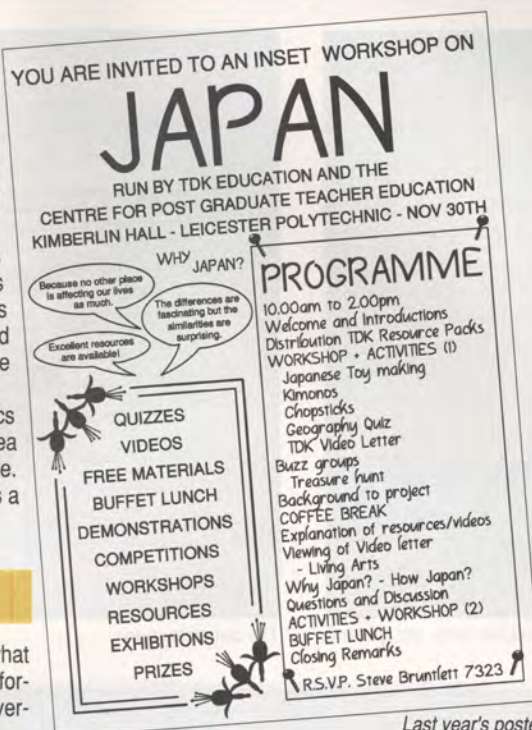 YOU ARE INVITED TO AN INSET WORKSHOP ON
JAPAN
RUN BY TDK EDUCATION AND THE
CENTRE FOR POST GRADUATE TEACHER EDUCATION
KIMBERLIN HALL - LEICESTER POLYTECHNIC - NOV 30TH
WHY JAPAN?
Because no other place
is affecting our lives
as much.
The differences are
fascinating but the
similarities are
surprising.
Excellent resources
are available!
QUIZZES
VIDEOS
FREE MATERIALS
BUFFET LUNCH
DEMONSTRATIONS
COMPETITIONS
WORKSHOPS
RESOURCES
EXHIBITIONS
PRIZES
PROGRAMME
10.00am to 2.00pm
Welcome and Introductions
Distribution TDK Resource Packs
WORKSHOP + ACTIVITIES (1)
Japanese Toy making
Kimonos
Chopsticks
Geography Quiz
TDK Video Letter
Buzz groups
Treasure hunt
Background to project
COFFEE BREAK
Explanation of resources/videos
Viewing of Video letter
- Living Arts
Why Japan? - How Japan?
Questions and Discussion
ACTIVITIES + WORKSHOP (2)
BUFFET LUNCH
Closing Remarks
R.S.V.P. Steve Bruntlett 7323
Last year's poste